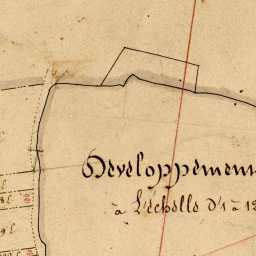 Developpement
à L'échelle d'1 à 12